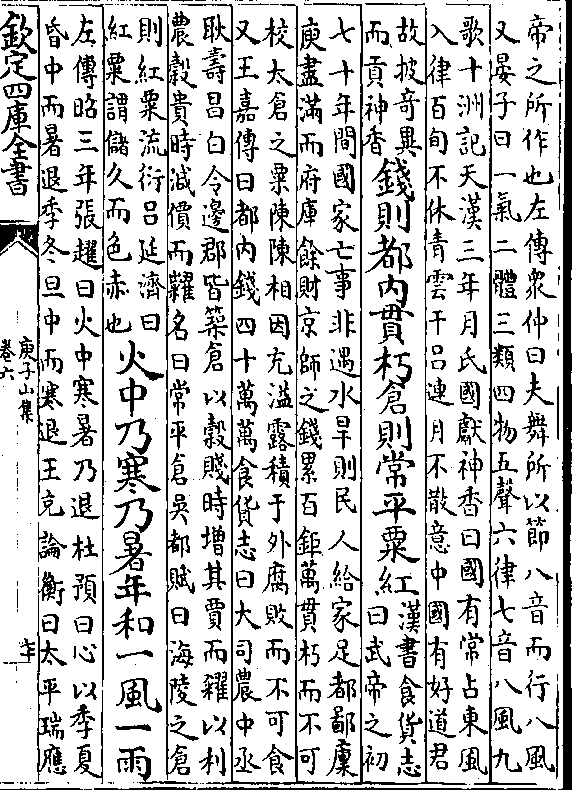 帝之所作也左傳衆仲曰夫舞所以節八音而行八風
又晏子曰一氣二體三類四物五聲六律七音八風九
歌十洲記天漢三年月氏國獻神香曰國有常占東風
入律百旬不休青雲干呂連月不散意中國有好道君
故披奇異而貢神香錢則都內貫朽倉則常平粟紅漢書食貨志曰武帝之初
七十年間國家亡事非遇水旱則民人給家足都鄙廩
庾盡滿而府庫餘財京師之錢累百鉅萬貫朽而不可
校太倉之粟陳陳相因充溢露積于外腐敗而不可食
又王嘉傳曰都內錢四十萬萬食貨志曰大司農中丞
耿壽昌白令邊郡皆築倉以穀賤時增其賈而糴以利
農穀貴時減價而糶名曰常平倉吳都賦曰海陵之倉
則紅粟流衍呂延濟曰紅粟謂儲久而色赤也火中乃寒乃暑年和一風一雨
左傳昭三年張趯曰火中寒暑乃退杜預曰心以季夏
昏中而暑退季冬旦中而寒退王充論衡曰太平瑞應
欽定四庫全書
庾子山集
卷六